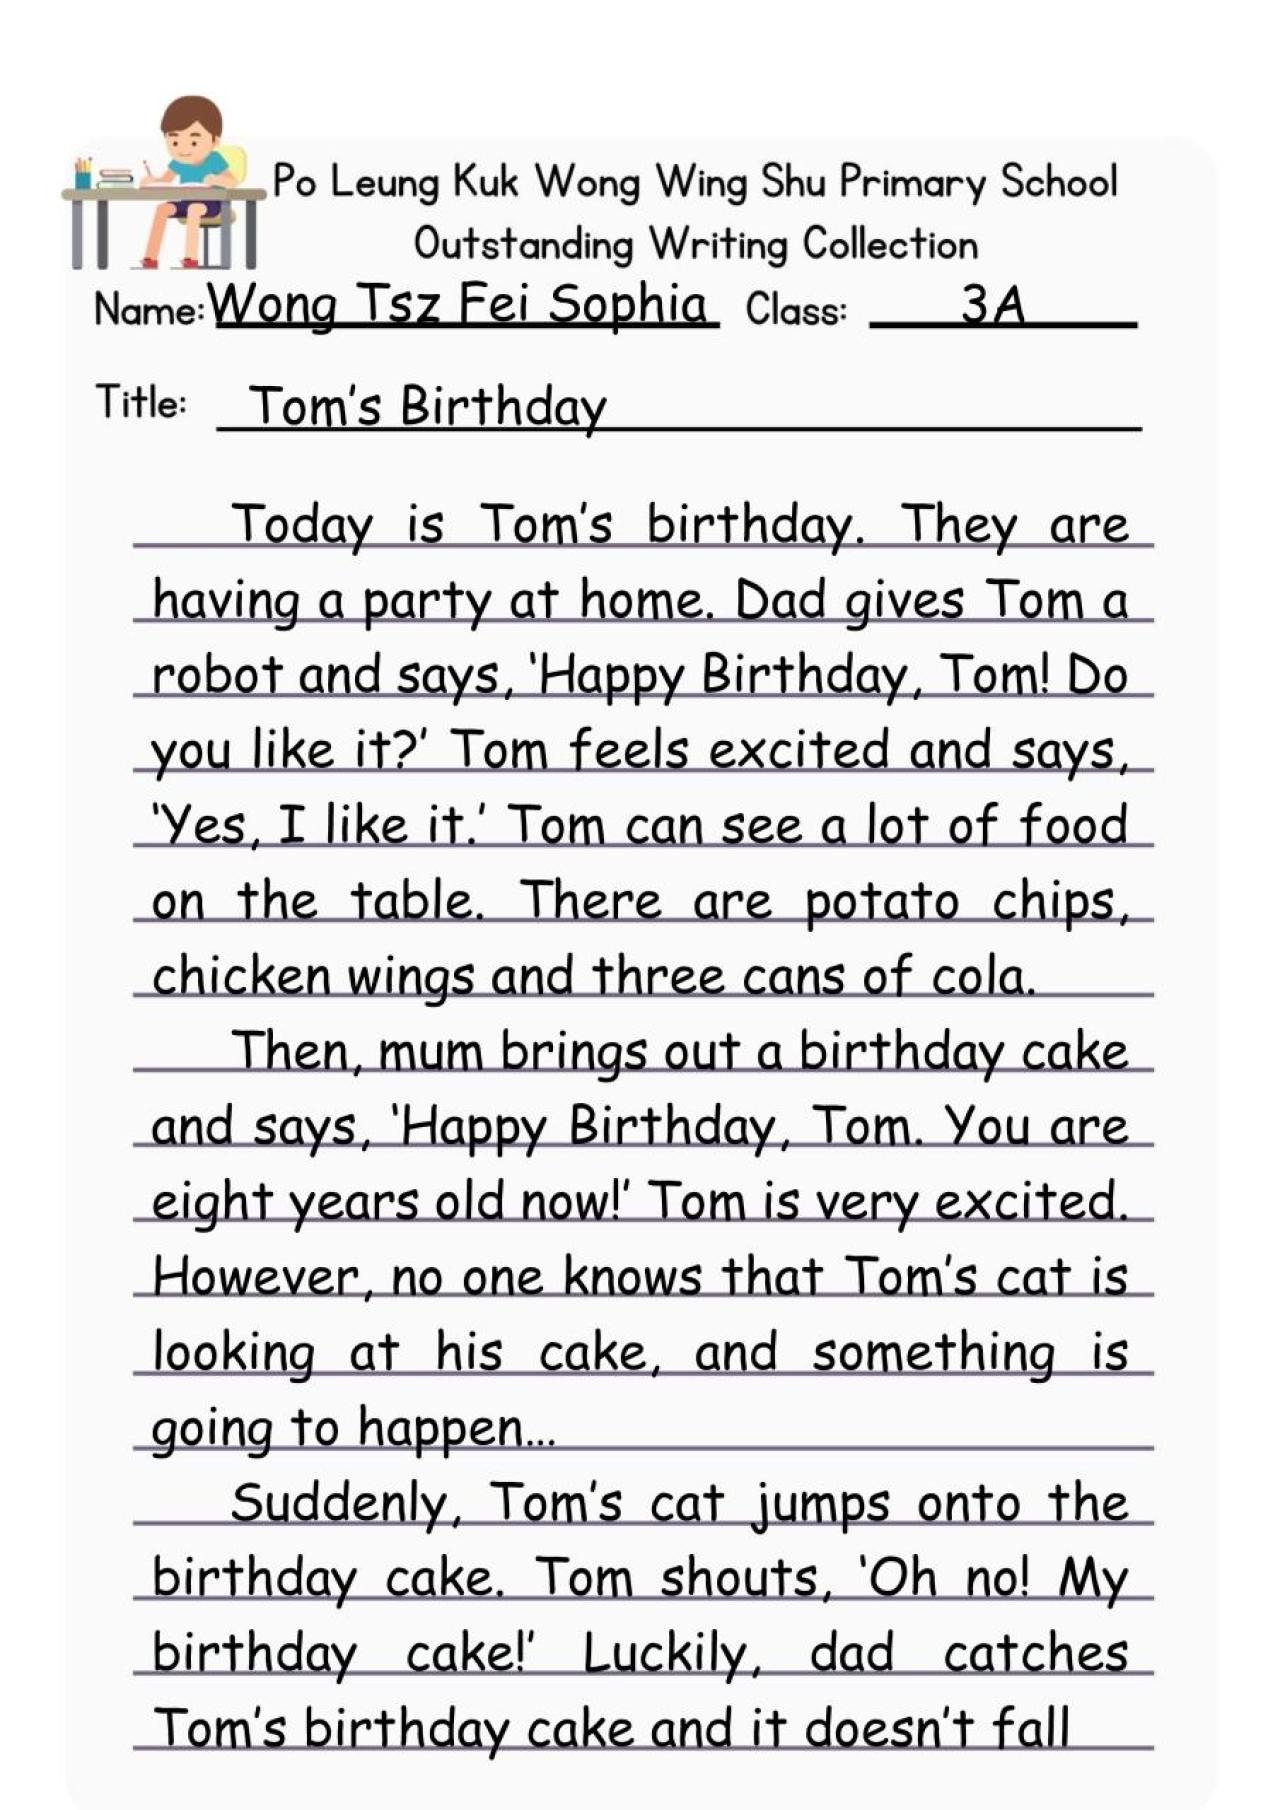 Po Leung Kuk Wong Wing Shu Primary School
Outstanding Writing Collection
Name: Wong Tsz Fei Sophia Class: 3A
Title: Tom's Birthday
Today is Tom's birthday. They are
having a party at home. Dad gives Tom a
robot and says, 'Happy Birthday, Tom! Do
you like it?' Tom feels excited and says,
'Yes, I like it.' Tom can see a lot of food
on the table. There are potato chips,
chicken wings and three cans of cola.
Then, mum brings out a birthday cake
and says, 'Happy Birthday, Tom. You are
eight years old now!' Tom is very excited.
However, no one knows that Tom's cat is
looking at his cake, and something is
going to happen...
Suddenly, Tom's cat jumps onto the
birthday cake. Tom shouts, 'Oh no! My
birthday cake!' Luckily, dad catches
Tom's birthday cake and it doesn't fall